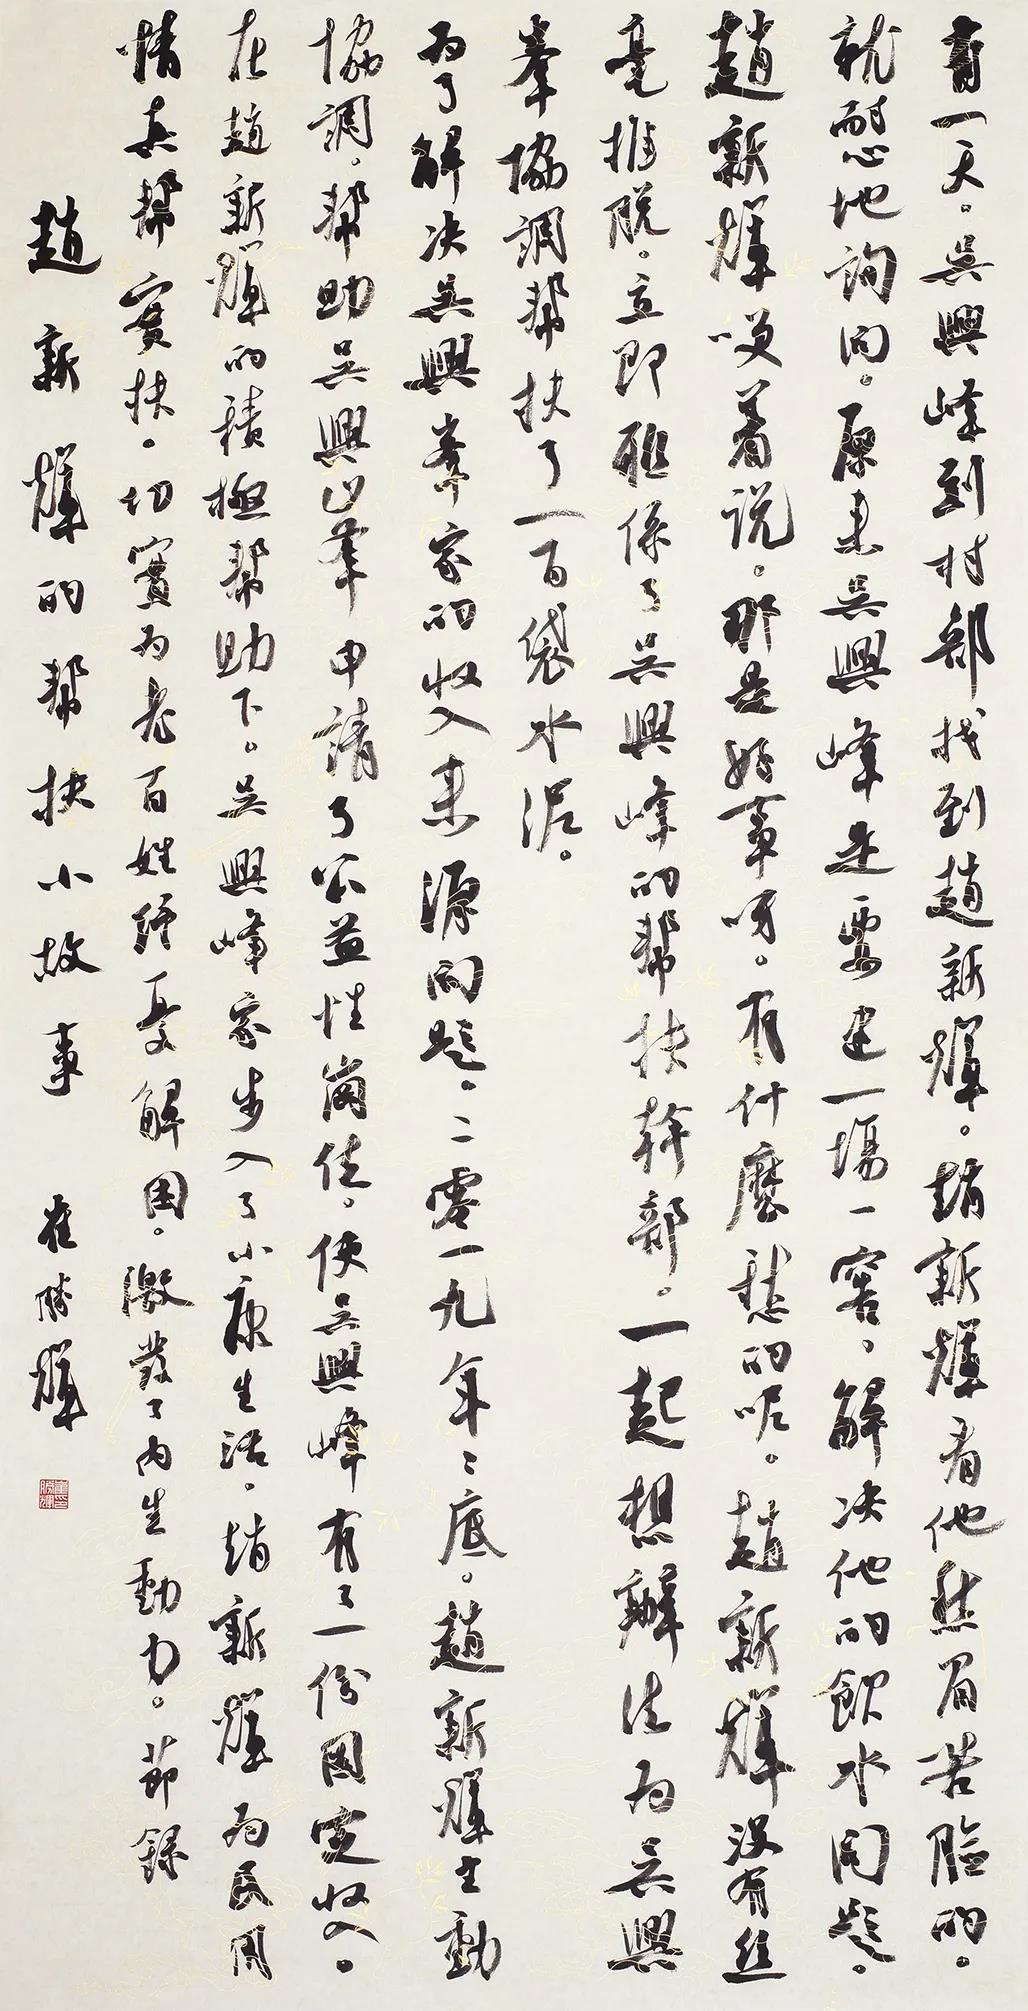 有一天。吳興峰到村部找到趙新輝。趙新輝看他愁眉苦臉的。
就耐心地詢問。原来吳興峰是要建一場一窖。解决他的飲水問題。
趙新輝笑着说。那是好事呀。有什麼愁的呢。趙新輝没有丝
毫推脱。立即联係了吳興峰的帮扶幹部。一起想辦法為吳興
峯協調帮扶了一百袋水泥。
為了解决吳興峯家的收入来源問題。二零一九年年底。趙新輝主動
協調。帮助吳興峯申請了公益性崗位。使吳興峰有了一份固定收入。
在趙新輝的積極帮助下。吳興峰家步入了小康生活。趙新輝為民用
情真帮實扶。切實為老百姓紓憂解困。激發了内生動力。節録
趙新輝的帮扶小故事 崔勝輝